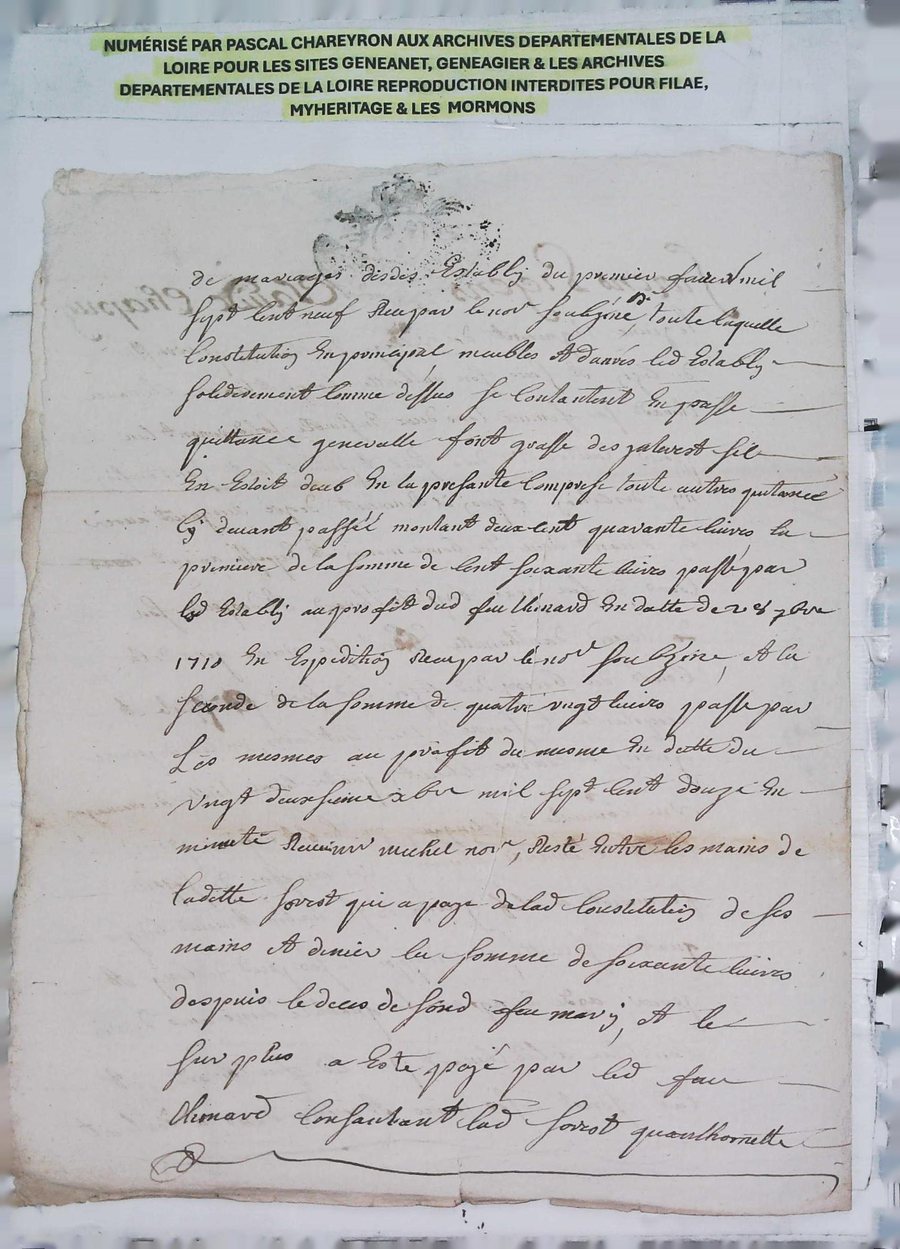 NUMÉRISÉ PAR PASCAL CHAREYRON AUX ARCHIVES DEPARTEMENTALES DE LA
LOIRE POUR LES SITES GENEANET, GENEAGIER & LES ARCHIVES
DEPARTEMENTALES DE LA LOIRE REPRODUCTION INTERDITES POUR FILAE,
MYHERITAGE & LES MORMONS
de mariages desdts Establis du premier feuvr mil
sept cent neuf Receu par le nore soubziné toute laquelle
Constitution En principal, meubles Et led Establis
solidérement comme dessus se contantent En passe
quittance generalle font grasse des sil
En Estoit deub En la presante comprise toute autres quitance
Cy devant passéé montant deux cent quarante livres la
premiere de la somme de cent soixante livres passé par
led Establis au profit dud feu Chinard En datte de 28 7bre
1710 En Expedition Receu par le nore soubziné, Et la
seconde de la somme de quatre vingt livres passé par
Les mesmes au profit du mesme En datte du
vingt deuxsieme xbre mil sept cent douze En
minute Michel nore, Resté Entre les mains de
Cadette qui a payé de lad Constitution de ses
mains Et denier la somme de soixante livres
despuis le deces de sond feu mary, Et le
sur plus a Esté payé par led feu
Chinard lad